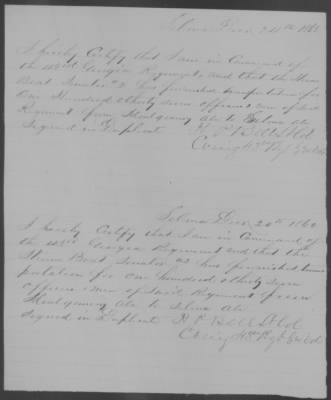 Selma Dec 24th 1862
I hereby Certify that I am in Command of
the 43rd Georgia Regiment and that the Steam
Boat Senator No 2 has furnished transportation for
One Hundred & thirty seven officers & men of said
Regiment from Montgomery Ala to Selma Ala
Signed in Duplicate H P Bell Lt Col
Comg 43rd Regt Ga Vols
Selma Dec 24th 1862
I hereby Certify that I am in Command of
the 43rd Georgia Regiment and that the
Steam Boat Senator No 2 has furnished trans
portation for One hundred & thirty seven
officers & men of Said Regiment from
Montgomery Ala to Selma Ala
Signed in Duplicate H P Bell Lt Col
Comg 43rd Regt Ga Vols